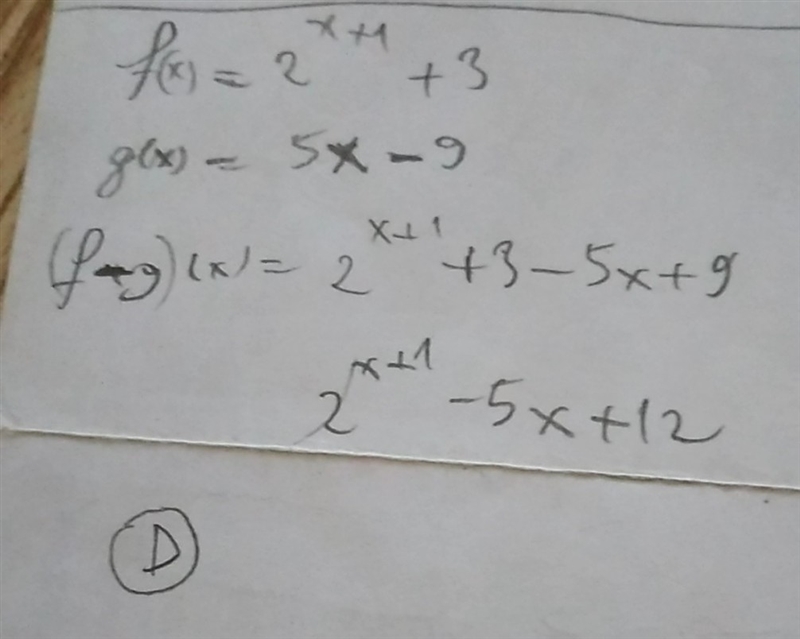 f(x) = 2^{x+1} + 3
g(x) = 5x - 9
(f-g)(x) = 2^{x+1} +3 - 5x + 9
2^{x+1} - 5x + 12
D